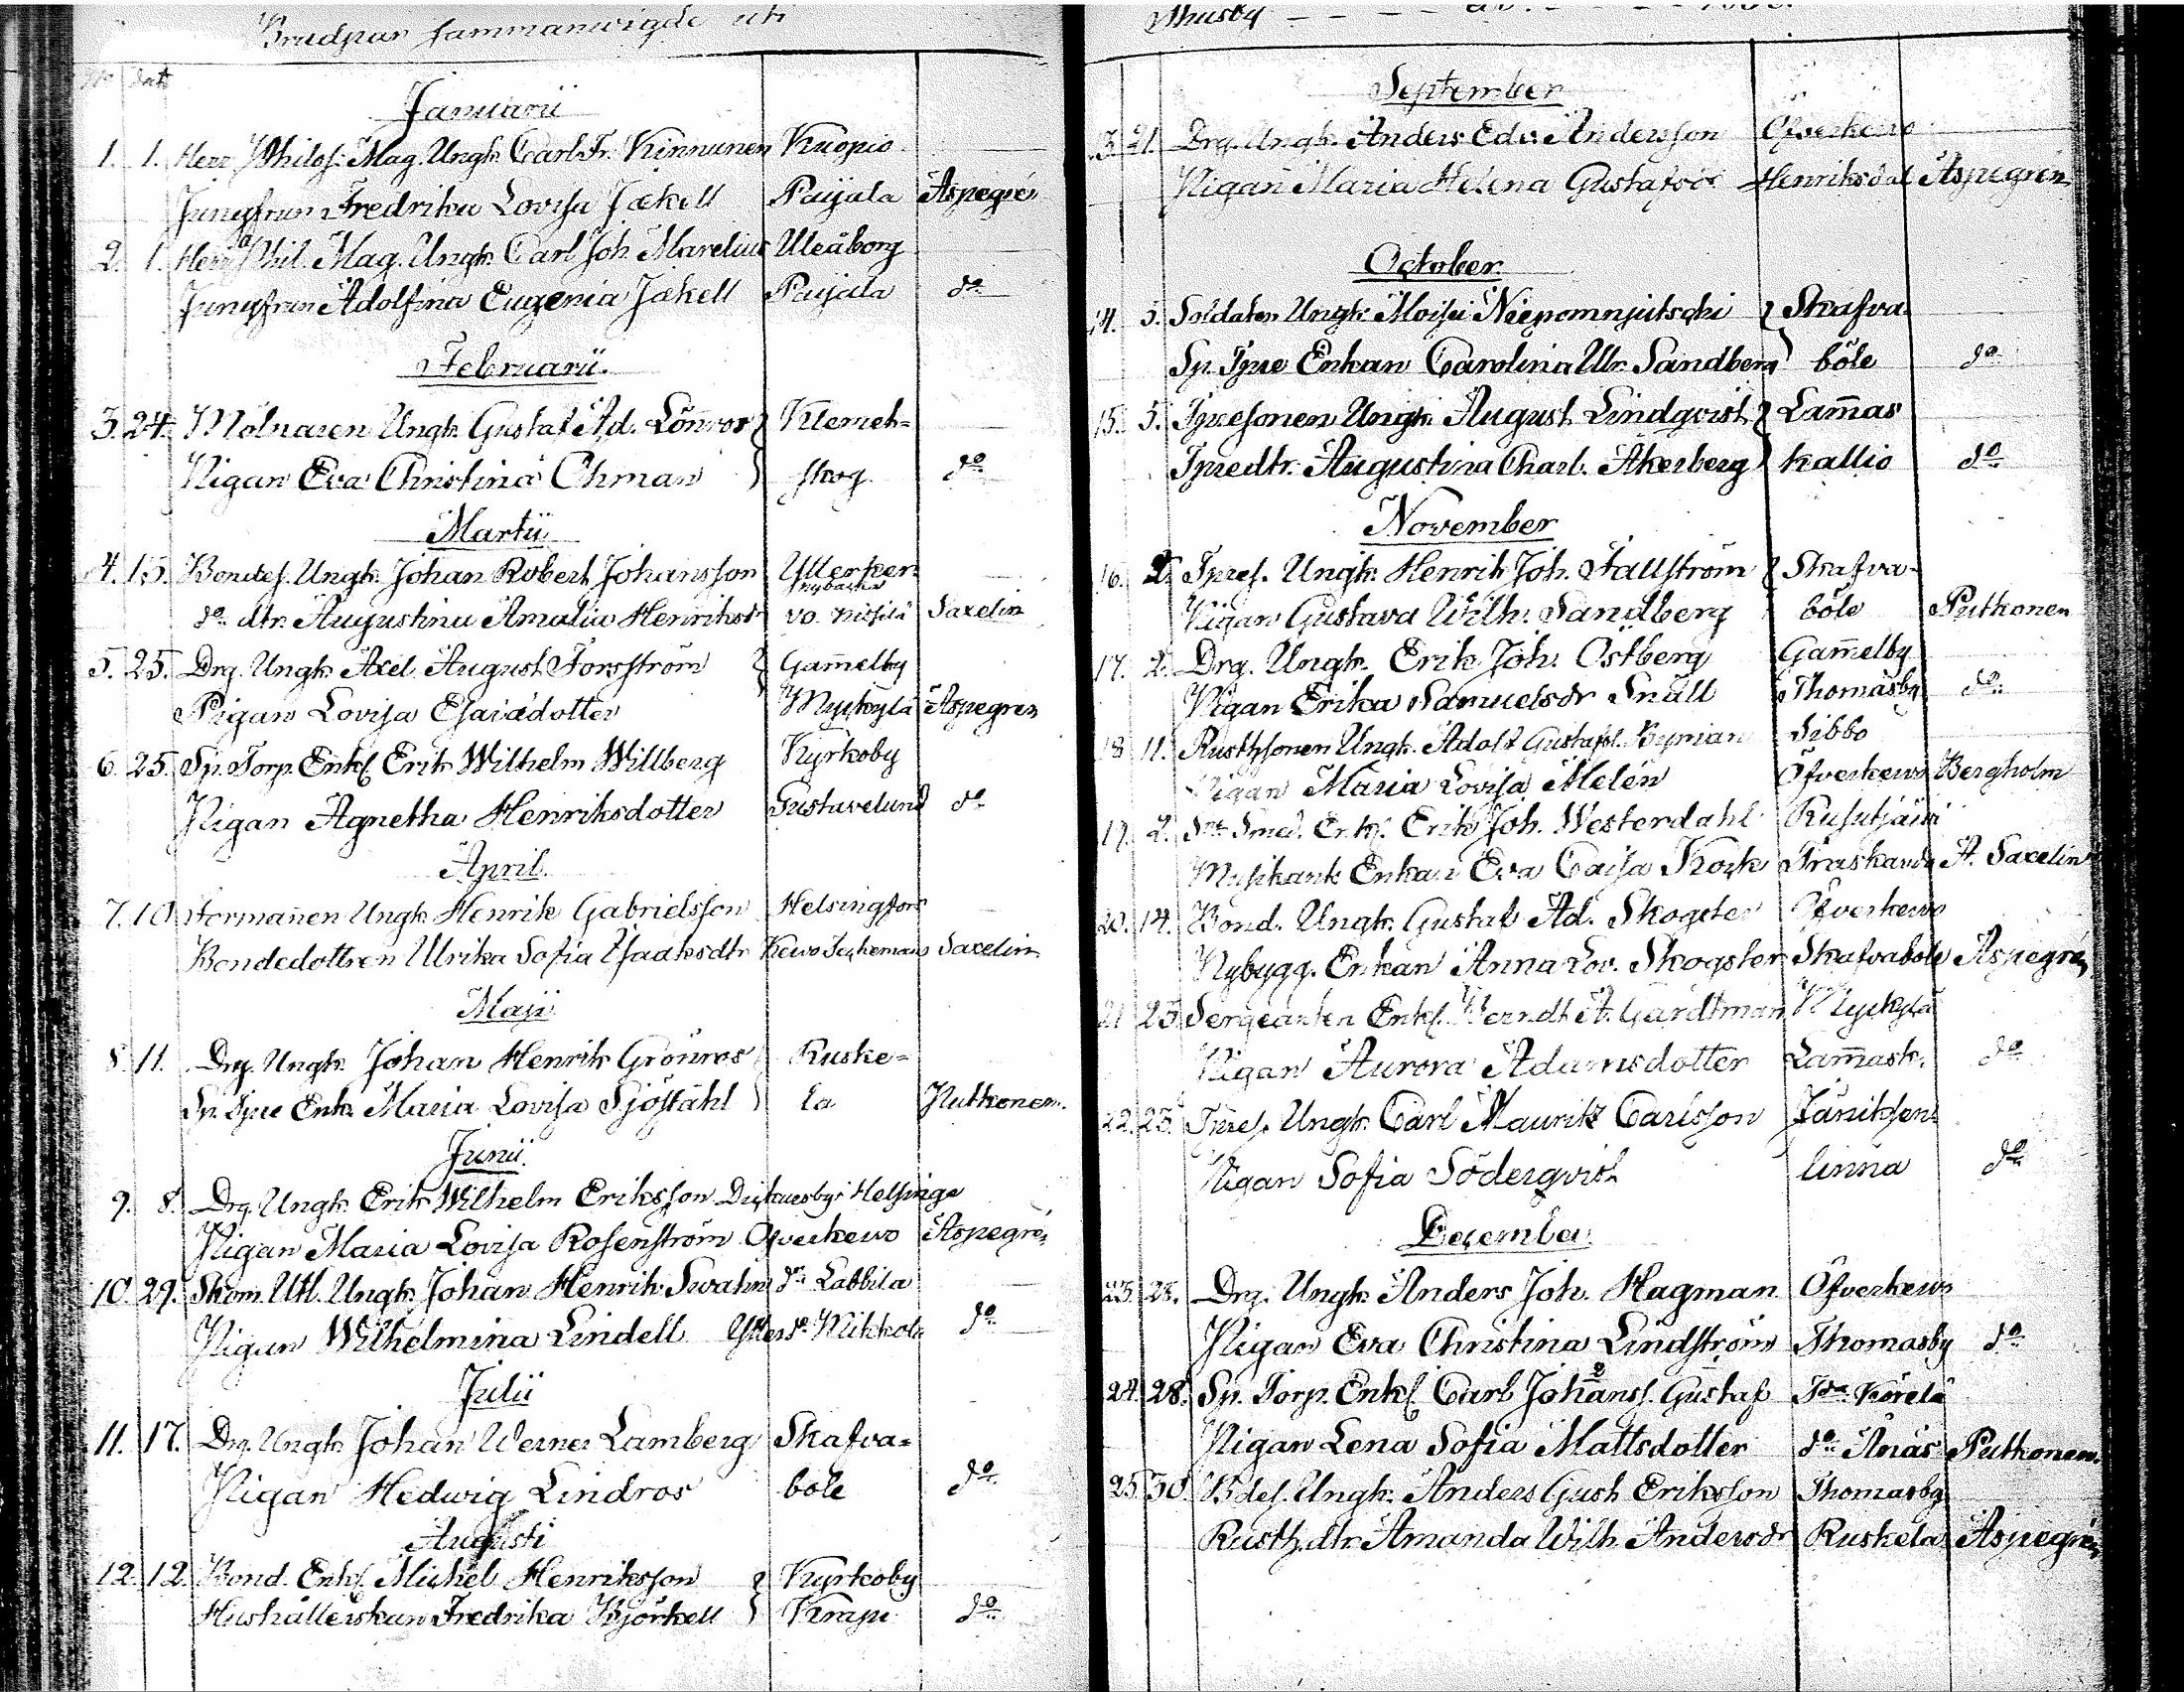 Brudpar sammanwigde uti
No Dat
Januarii
1. 1. Herr Philos. Mag. Ungk. Carl Fr. Kinnunen Kuopio
Jungfrun Fredrika Lovisa Jækell Paijala Aspegrén
2. 1. Herr Phil. Mag. Ungk. Carl Joh. Marelius Uleåborg
Jungfrun Adolfina Eugenia Jækell Paijala do
Februarii.
3. 24. Mölnaren Ungk. Gustaf Ad. Lönnros Klemets=
Pigan Eva Christina Öhman skog. do
Martii
4. 15. Bondes. Ungk. Johan Robert Johansson Ytterker=
do dtr. Augustina Amalia Henriksdr vo. Saxelin
5. 25. Drg. Ungk. Axel August Forsström Gam̄elby
Pigan Lovisa Esaiædotter Myckylä Aspegrén
6. 25. Sp. Torp. Enkl. Erik Wilhelm Willberg Kyrkoby
Pigan Agnetha Henriksdotter Gustavelund do
April.
7. 10 Forman̄en Ungk. Henrik Gabrielsson Helsingfors
Bondedottren Ulrika Sofia Isaaksdtr Kewo Saxelin
Maji
8. 11. Drg. Ungk. Johan Henrik Grönros Ruske=
Sp. Tjue Enk. Maria Lovisa Sjöståhl la Puthonen.
Junii.
9. 8. Drg. Ungk. Erik Wilhelm Eriksson Dickursby i Helsinge
Pigan Maria Lovisa Rosenström Öfverkewo Aspegrén
10. 29. Skom. Utl. Ungk. Johan Henrik Swahn do Labbila
Pigan Wilhelmina Lindell Ytter do Mikkola do
Julii
11. 17. Drg. Ungk. Johan Werner Lamberg Skafva=
Pigan Hedwig Lindros böle do
Augusti
12. 12. Bond. Enkl. Michel Henriksson Kyrkoby
Hushållerskan Fredrika Björkell Krapi do
Thusby
September
13. 21. Drg. Ungk. Anders Edv. Andersson Öfverkewo
Pigan Maria Helena Gustafsdr Henriksdal Aspegrén
October.
14. 5. Soldaten Ungk. Moisei Niepomnjutschi Skafva.
Sp. Tjue Enkan Carolina Ulr. Sandberg böle do
15. 5. Tjuesonen Ungk. August Lindqvist Lam̄as
Tjuedtr. Augustina Charl. Åkerberg kallio do
November
16. 2. Tjues. Ungk. Henrik Joh. Fallström Skafva-
Pigan Gustava Wilh. Sandberg böle Puthonen
17. 2. Drg. Ungk. Erik Joh. Östberg Gam̄elby
Pigan Erika Samuelsdr Snäll Thomasby do
18 11. Rusthsonen Ungk. Adolf Gustafsl. Byman Sibbo
Pigan Maria Lovisa Melén Öfverkewo Bergholm
19. 2. Smed. Enkl. Erik Joh. Westerdahl Rusutjärvi
Musikant Enkan Eva Caisa Kock Träskända A. Saxelin
20. 14. Bond. Ungk. Gustaf Ad. Skogster Öfverkewo
Nybygg. Enkan Anna Lov. Skogster Skafvaböle Aspegrén
21 23. Sergeanten Enkl. Berndt A. Gardtman Myckylä
Pigan Aurora Adamsdotter Lam̄ask. do
22. 23. Tjues. Ungk. Carl Mauritz Carlsson Jäniksen
Pigan Sofia Söderqvist linna do
December
23. 28. Drg. Ungk. Anders Joh. Hagman Öfverkewo
Pigan Eva Christina Lindström Thomasby do
24. 28. Sp. Torp. Enkl. Carl Johansl. Gustaf Körelä
Pigan Lena Sofia Mattsdotter do Ånäs Puthonen.
25. 30. Bdes. Ungk. Anders Gust. Eriksson Thomasby
Rusth. dtr. Amanda Wilh. Andersdr Ruskela Aspegrén